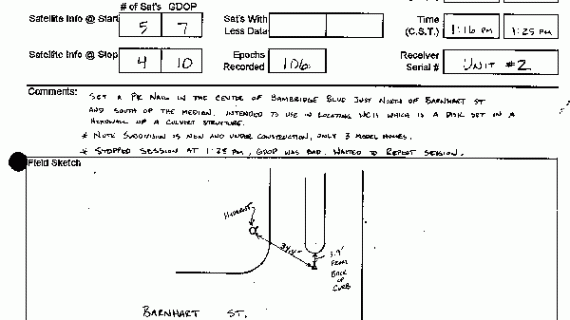 # of Sat's GDOP
Satellite Info @ Start 5 7 Sat's With Less Data Time (C.S.T.) 1:16 PM 1:25 PM
Satellite Info @ Stop 4 10 Epochs Recorded 106 Receiver Serial # UNIT #2
Comments: SET A PK NAIL IN THE CENTER OF BAMBRIDGE BLVD JUST NORTH OF BARNHART ST
AND SOUTH OF THE MEDIAN. INTENDED TO USE IN LOCATING WHICH IS A DISK SET IN A
HEADWALL OF A CULVERT STRUCTURE.
* NOTE SUBDIVISION IS NEW AND UNDER CONSTRUCTION, ONLY 3 MODEL HOMES.
* STOPPED SESSION AT 1:25 PM, GDOP WAS BAD. WAITED TO REPEAT SESSION.
Field Sketch
HYDRANT
1.9'
FROM
BACK
OF
CURB
BARNHART ST.